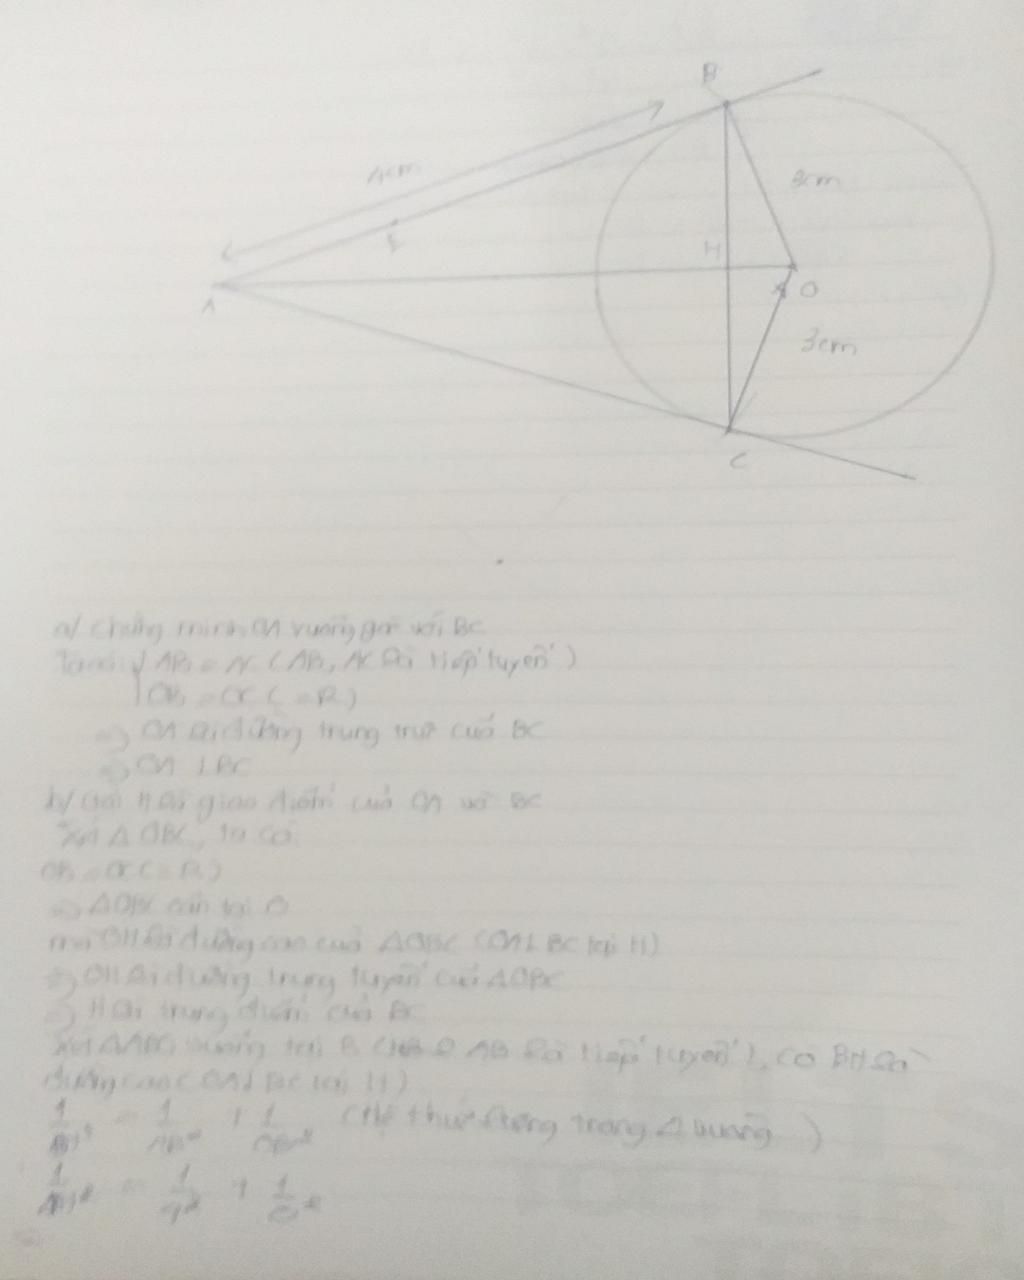 B
4cm
3cm
E
H
A
O
3cm
C
a/ Chứng minh OA vuông góc với BC
Ta có: AB = AC (AB, AC là tiếp tuyến)
OB = OC (= R)
=> OA là đường trung trực của BC
=> OA ⊥ BC
b/ Gọi H là giao điểm của OA và BC
Xét Δ OBC, ta có:
OB = OC (= R)
=> ΔOBC cân tại O
mà OH là đường cao của ΔOBC (OA ⊥ BC tại H)
=> OH là đường trung tuyến của ΔOBC
=> H là trung điểm của BC
Xét ΔABO vuông tại B ( AB là tiếp tuyến), có BH là
đường cao (OA ⊥ BC tại H)
1/BH² = 1/AB² + 1/OB² (Hệ thức lượng trong Δ vuông)
1/BH² = 1/ + 1/